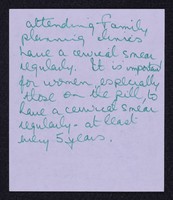 attending Family
planning clinics
have a cervical smear
regularly. It is important
for women, especially
those on the pill, to
have a cervical smear
regularly - at least
every 5 years.